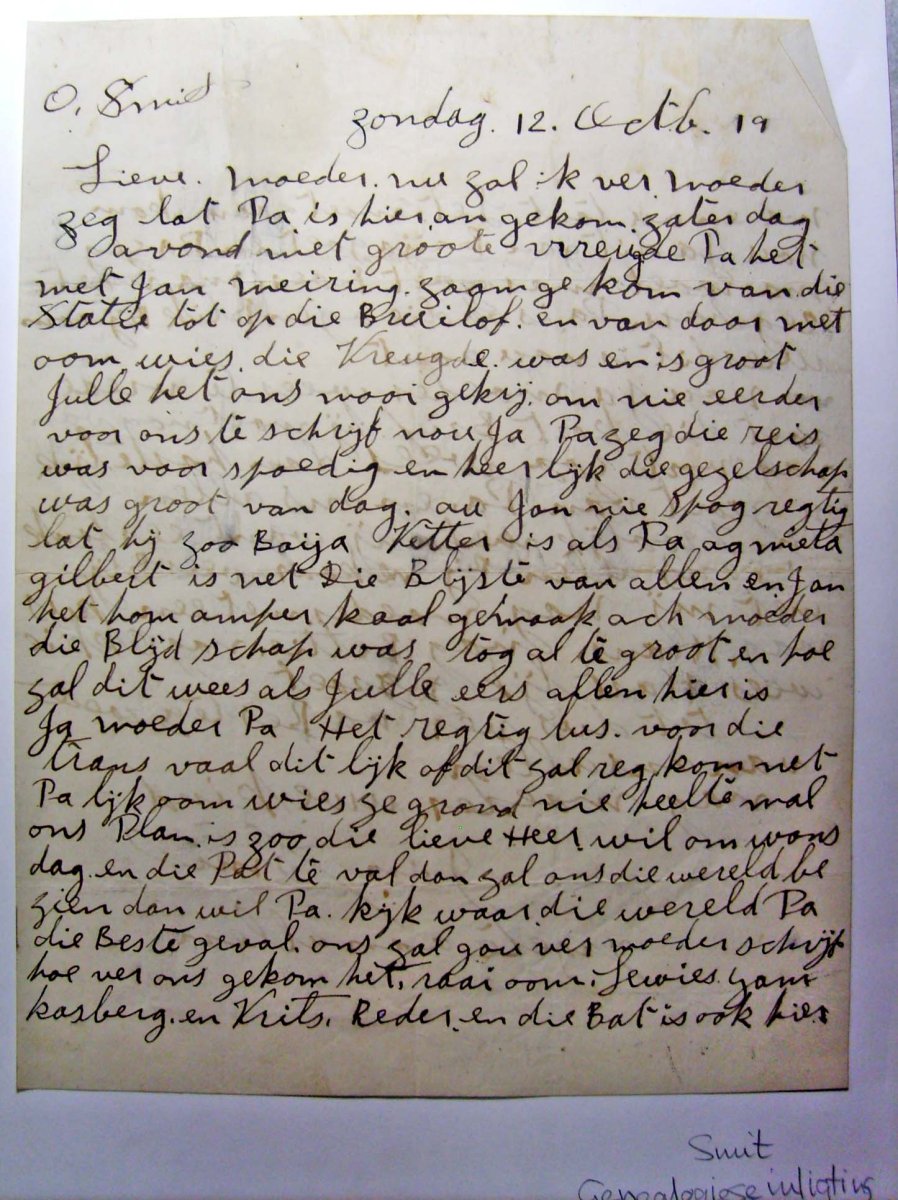 O. Smit
zondag. 12. Octb. 19
Lieve. moeder. nu zal ik ver moeder
zeg lat Pa is hier an gekom. zater dag
avond met groote vreugde Pa het
met Jan meiring. zaam ge kom van die
State tot op die Bruilof. en van daar met
oom wies. die Vreugde. was en is groot
Julle het ons mooi gekrij. om nie eerder
voor ons te schrijf nou Ja Pa zeg die reis
was voor spoedig en heer lijk die gezelschap
was groot van dag. au Jan nie Spog regtig
lat hij zoo Baija Vetter is als Pa ag
gilbert is net Die Blijste van allen en Jan
het hom amper kaal gemaak ach moeder
die Blijd schap was tog al te groot en hoe
zal dit wees als Julle eers allen hier is
Ja moeder Pa Het regtig lus. voor die
trans vaal dit lijk of dit zal reg kom net
Pa lijk oom wies ze grond nie heelte mal
ons Plan is zoo die lieve Heer wil om wons
dag. en die Pat te val dan zal ons die wereld be
zien dan wil Pa. kijk waar die wereld Pa
die Beste geval. ons zal gou ver moeder schrijf
hoe ver ons gekom het. raai oom. Lewies
kasberg. en Frits. Reder. en die Bat is ook hier
Smit
Genealogiese inligting